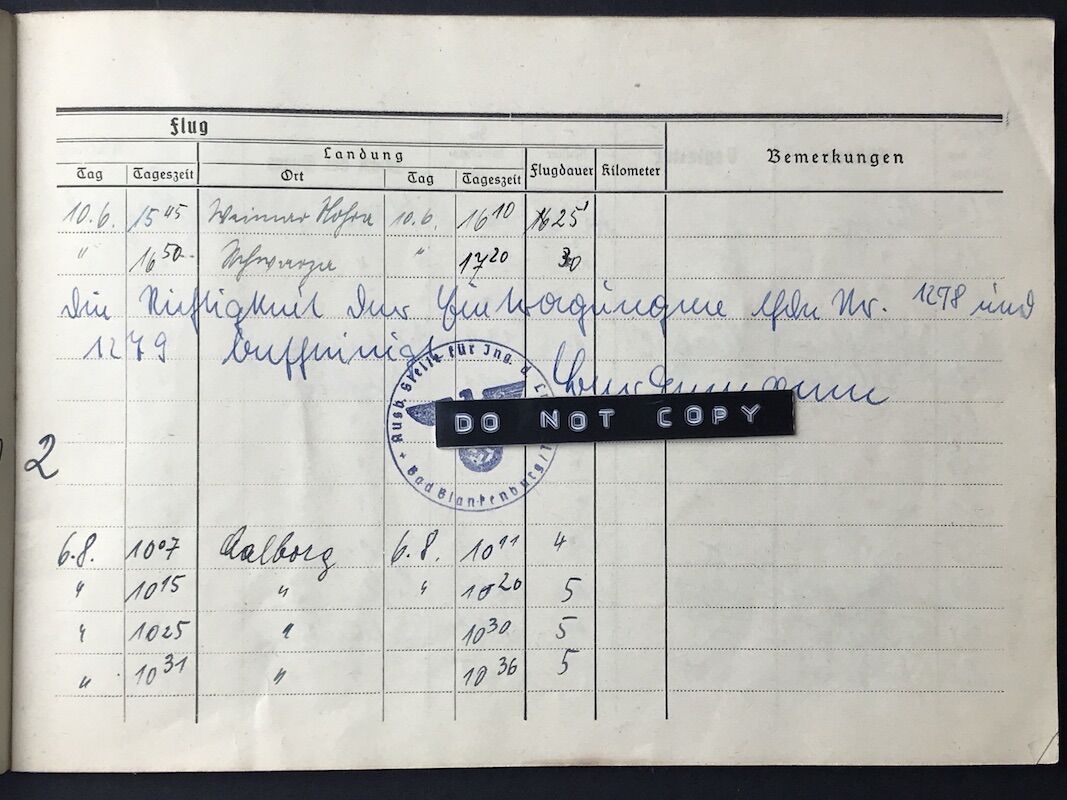 Flug
Landung
Bemerkungen
Tag Tageszeit Ort Tag Tageszeit Flugdauer Kilometer
10.6. 15 45 Weimar Nohra 10.6. 16 10 25'
" 16 50 Schwarza " 17 20 30
Die Richtigkeit der Eintragungen lfde Nr. 1278 und
1279 bescheinigt
+ Ausb. Stelle für Ing. d. L
Bad Blankenburg/T
DO NOT COPY
2
6.8. 10 07 Aalborg 6.8. 10 11 4
" 10 15 " " 10 20 5
" 10 25 " 10 30 5
" 10 31 " 10 36 5